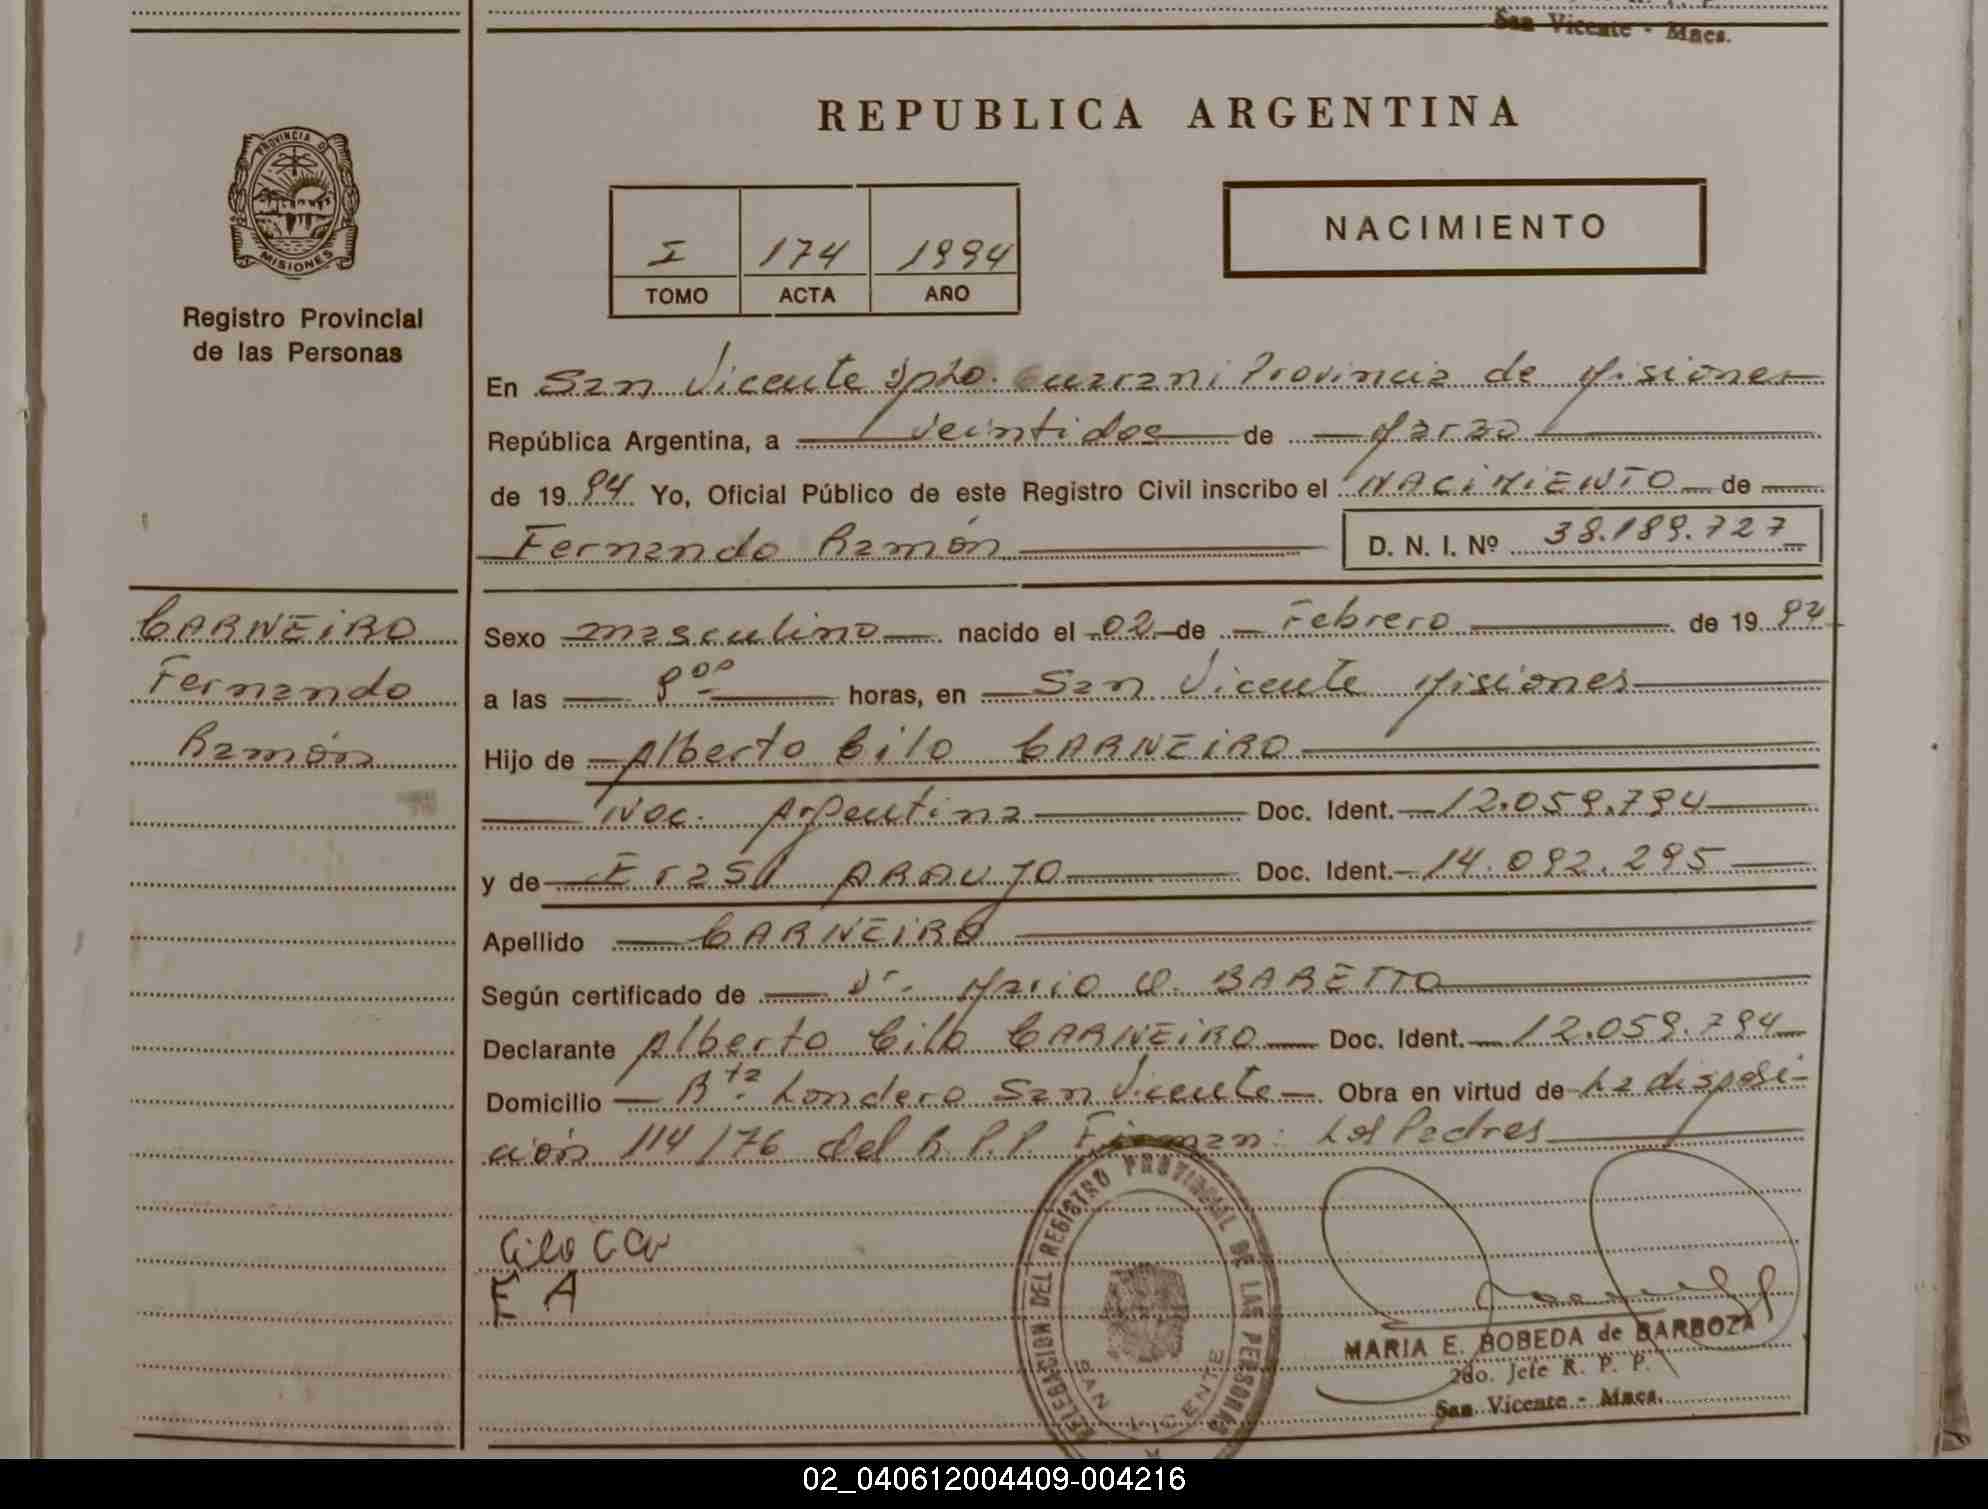 San Vicente - Mnes.
REPUBLICA ARGENTINA
PROVINCIA DE
MISIONES
Registro Provincial
de las Personas
I 174 1994
TOMO ACTA AÑO
NACIMIENTO
En San Vicente Dpto. Guarani Provincia de Misiones
República Argentina, a veintidos de Marzo
de 1994 Yo, Oficial Público de este Registro Civil inscribo el NACIMIENTO de
Fernando Ramón D. N. I. Nº 38.189.727
CARNEIRO
Fernando
Ramón
Sexo masculino nacido el 02 de Febrero de 1994
a las 9⁰⁰ horas, en San Vicente Misiones
Hijo de Alberto Cilo CARNEIRO
Nac. Argentina Doc. Ident. 12.059.794
y de Erasi ARAUJO Doc. Ident. 14.092.295
Apellido CARNEIRO
Según certificado de Dr. Mario O. BARETTO
Declarante Alberto Cilo CARNEIRO Doc. Ident. 12.059.794
Domicilio Bta. Londero San Vicente Obra en virtud de La disposi-
ción 114/76 del R.P.P. Firman: Los Padres
Cilo
E A
DELEGACION DEL REGISTRO PROVINCIAL DE LAS PERSONAS
SAN VICENTE
MARIA E. BOBEDA de BARBOZA
2do. Jefe R. P. P.
San Vicente - Mnes.
02_040612004409-004216